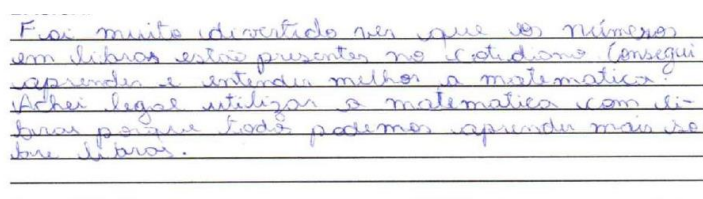 Foi muito divertido ver que os números
em libras estão presentes no cotidiano Consegui
aprender e entender melhor a matematica.
Achei legal utilizar a matematica com li-
bras porque todos podemos aprender mais so
bre libras.